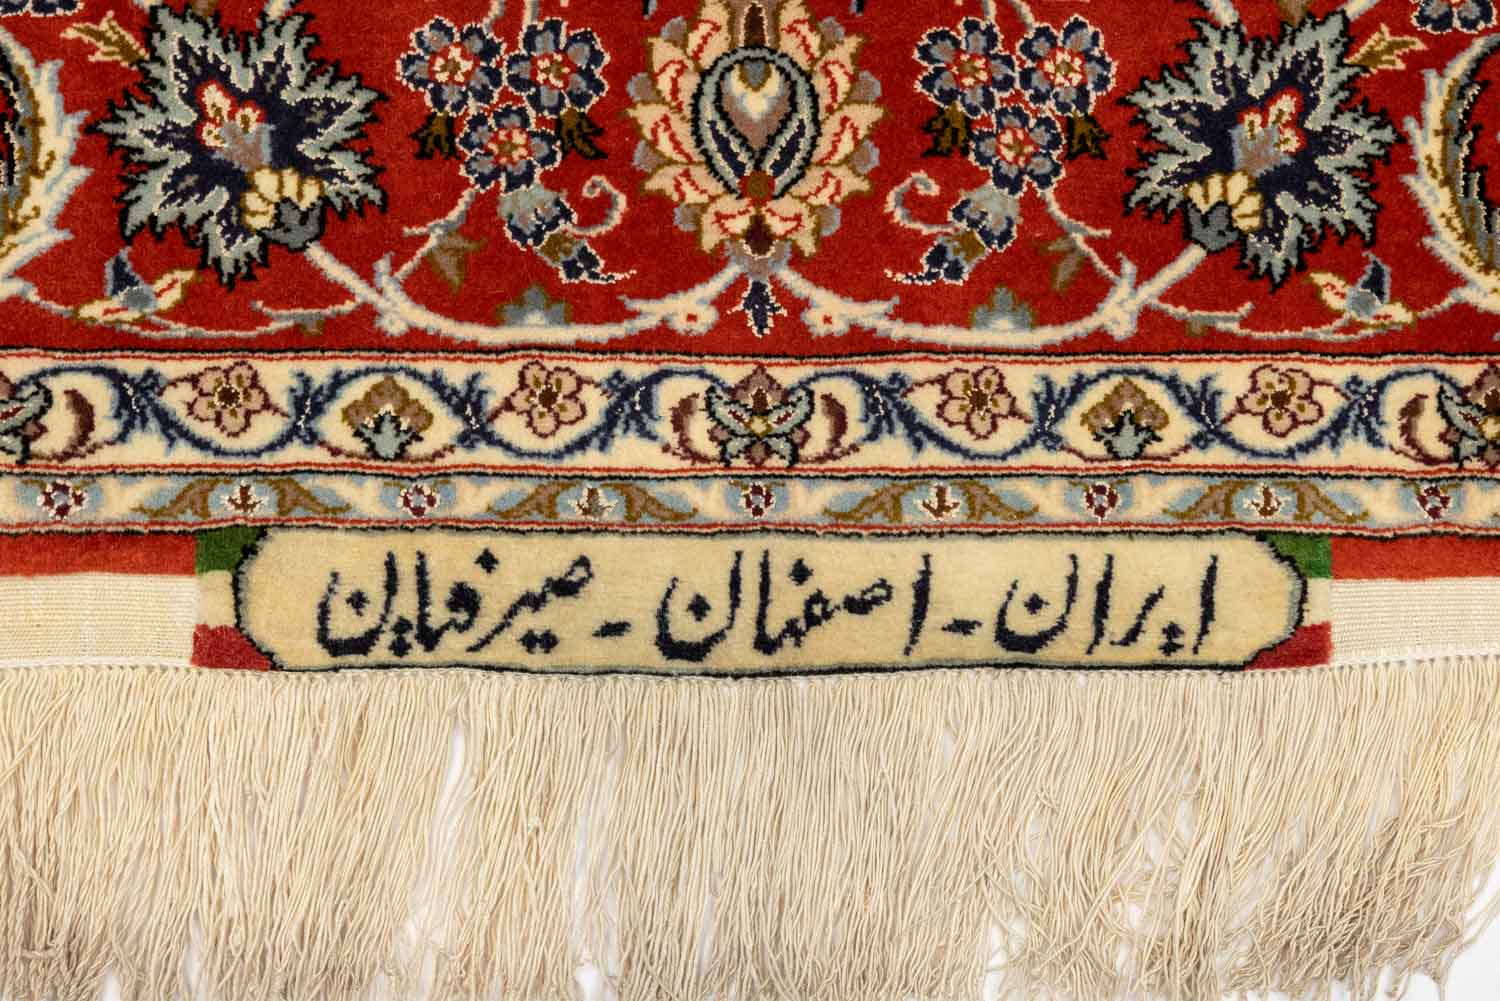 ایران - اصفهان - صیرفیان